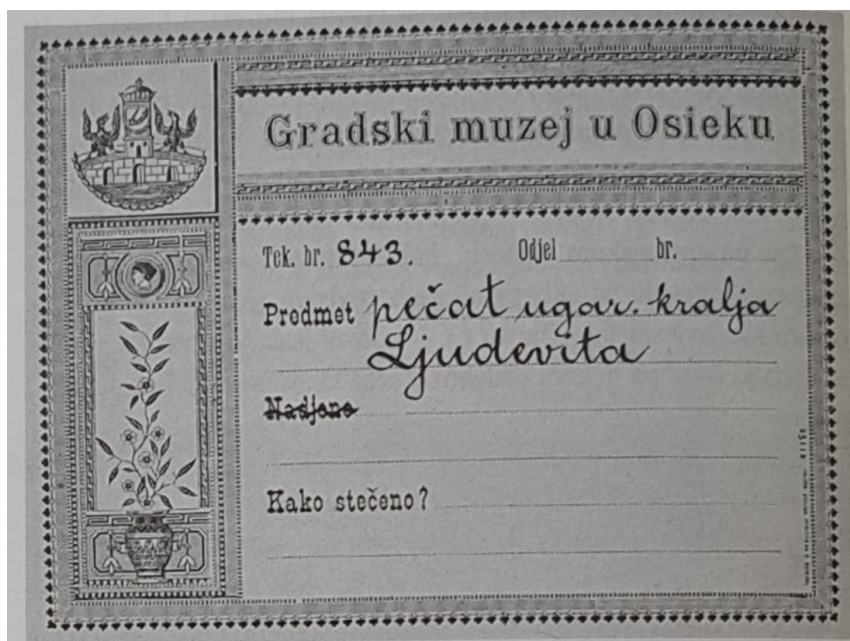 Gradski muzej u Osieku
Tek. br. 843. Odjel br.
Predmet pečat ugar. kralja
Ljudevita
Nadjeno
Kako stečeno?